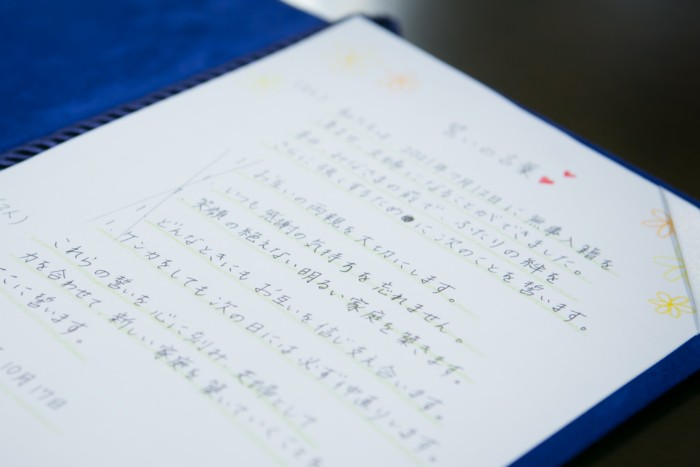 誓いの言葉
私たちは 2021年7月12日に無事入籍を
夫婦になることができました。
本日、みなさまの前で、ふたりの絆を
さらに強くするために次のことを誓います。
お互いの両親を大切にします。
いつも感謝の気持ちを忘れません。
笑顔の絶えない明るい家庭を築きます。
どんなときもお互いを信じ支え合います。
ケンカをしても次の日には必ず仲直りします。
これらの誓いを心に刻み、夫婦として
力を合わせて、新しい家庭を築いていくことを
ここに誓います。
10月17日